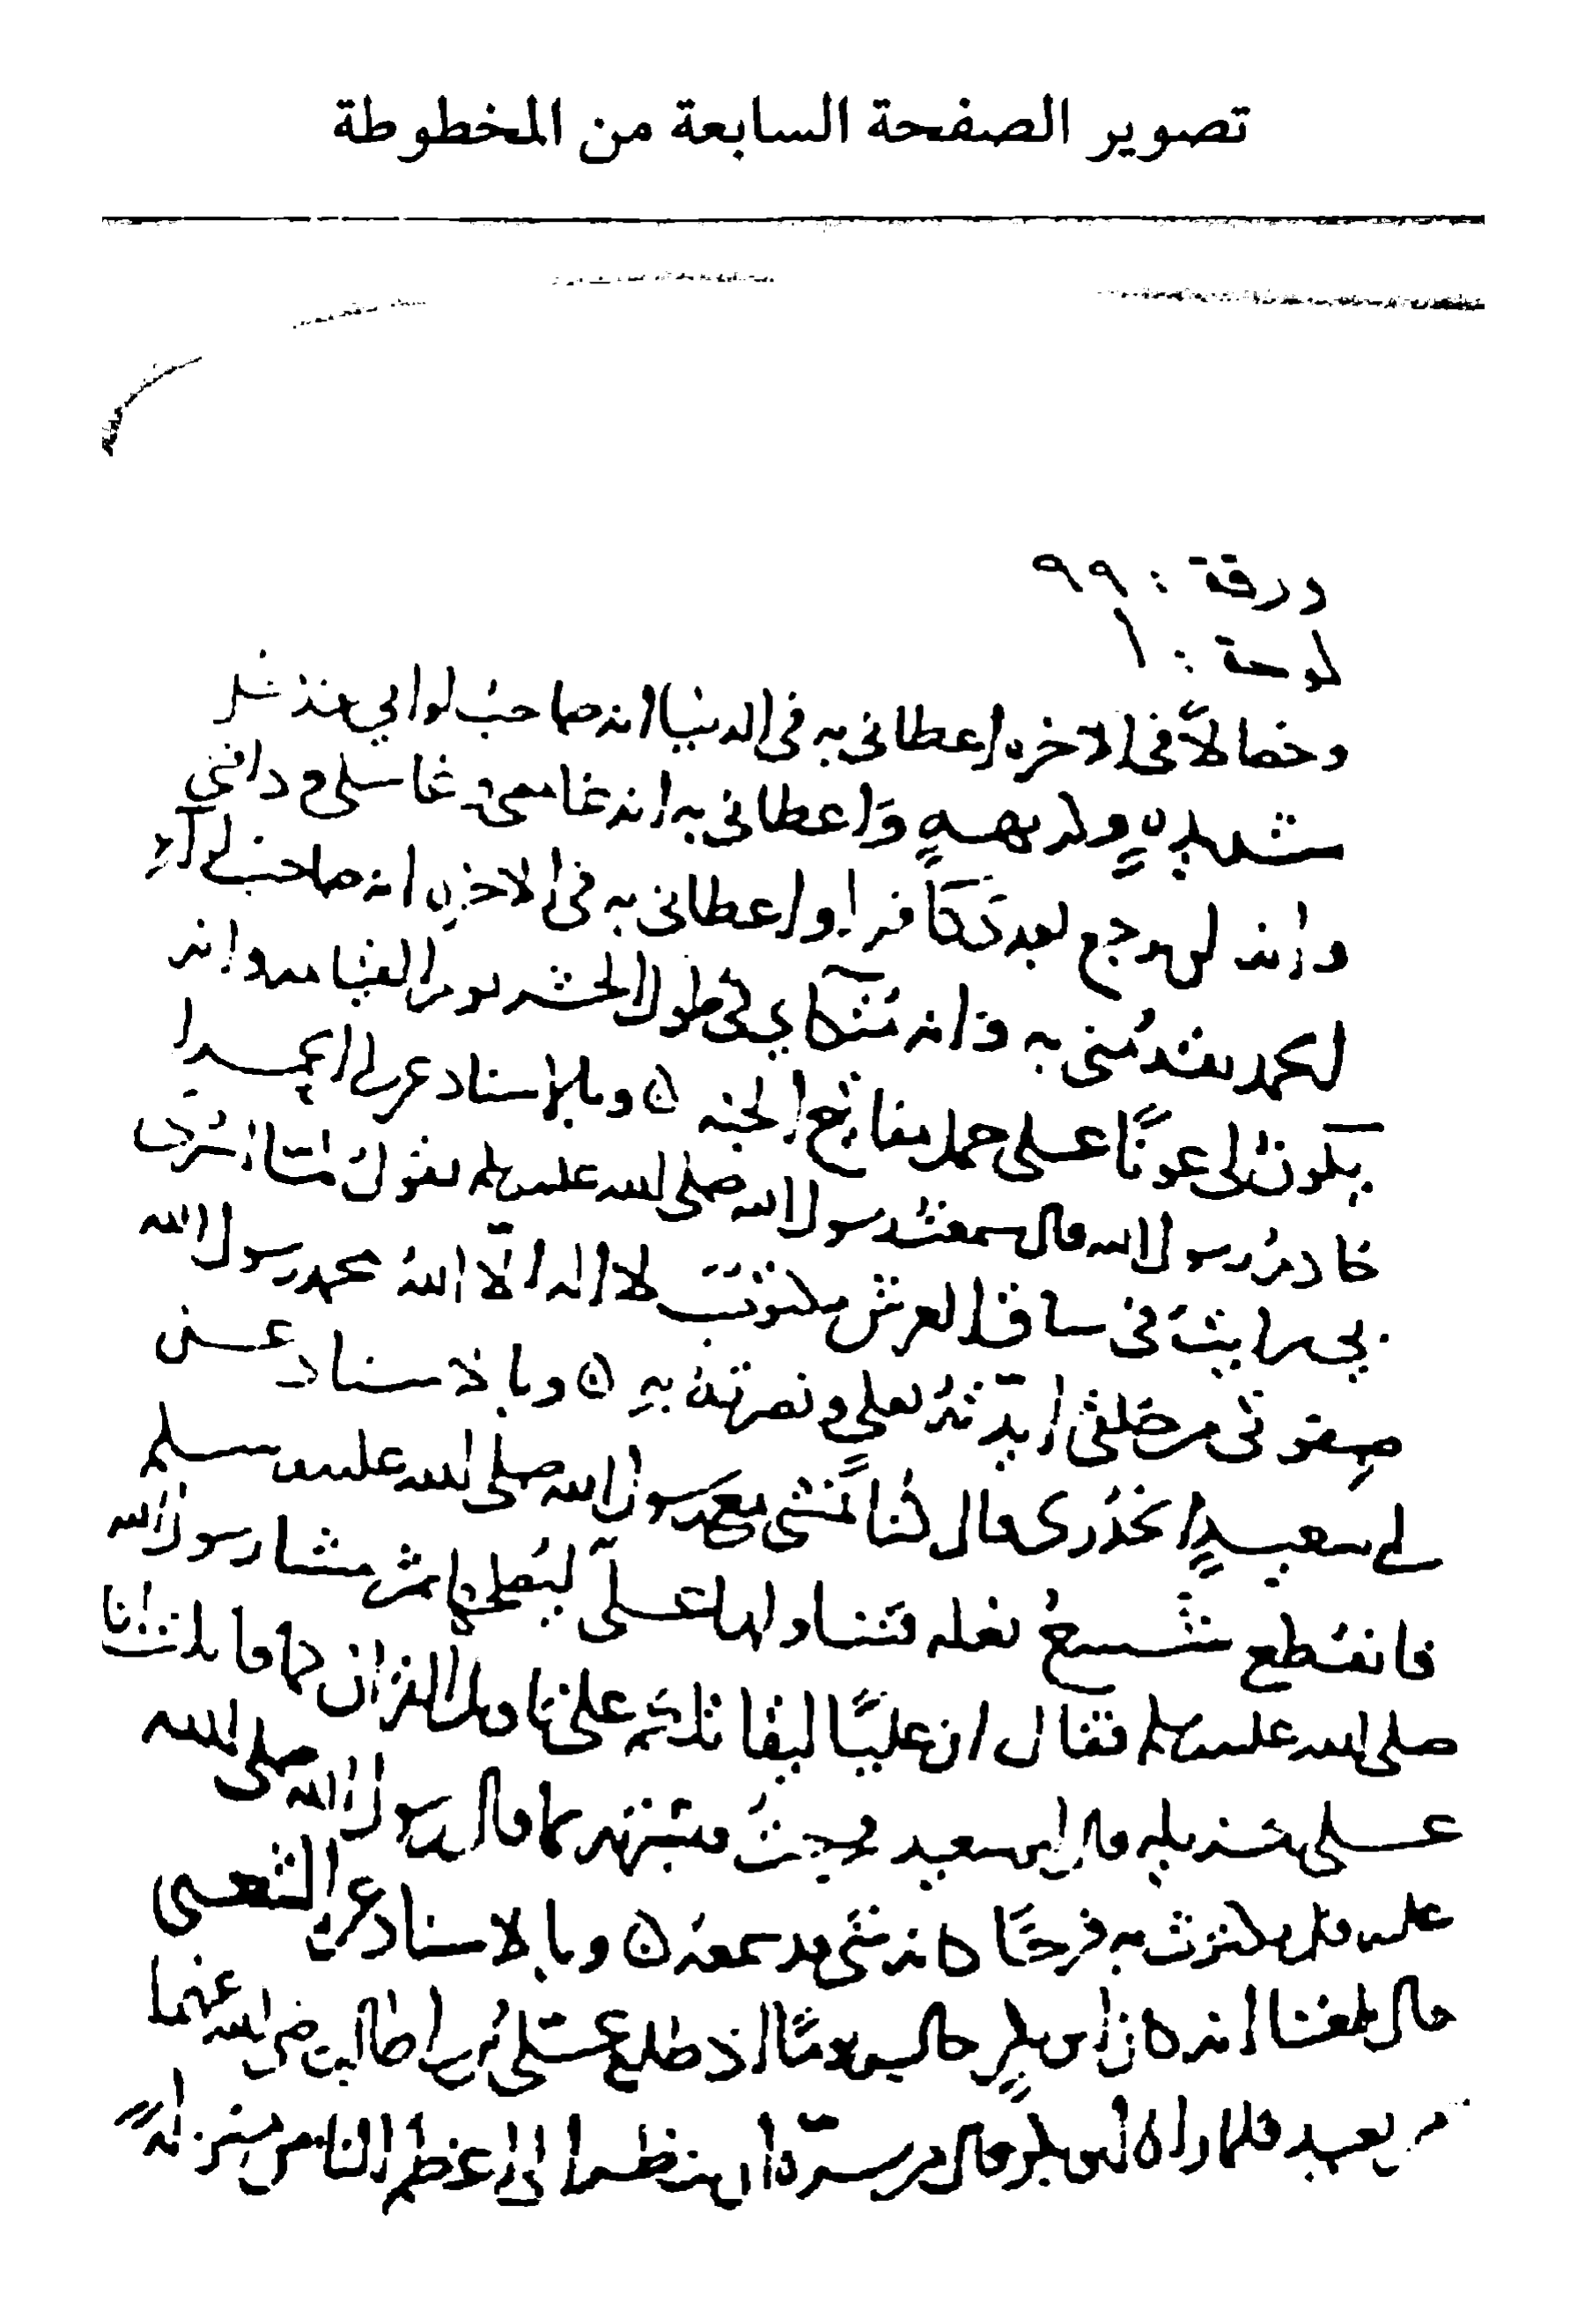 تصوير الصفحة السابعة من المخطوطة
ورقة : ٩٩
لوحة : ١
وخصالاً في الاخره اعطاني به في الدنيا انه صاحب لوايي عند كل
شديدةٍ وكريهةٍ وَاعطاني به انه غامضي وغاسلي ودافني
وانه لن يرجع بعدي كافرا واعطاني به في الاخره انه صاحب لوآءِ
الحمد يقدُمني به وانه مُتّكاي في طول الحشر يوم القيامه وانه
يكونُ لي عونًا على حمل مفاتيح الجنه ۞ وبالاسناد عن ابي الحمرا
خادم رسول الله قال سمعت رسول الله صلى الله عليه وسلم يقول لمّا اسُرِي
بي رايت في ساق العرش مكتوب لا اله الّا اللهُ محمد رسول الله
صفوتي من خلقي ايّدتُهُ بعلي ونصرتهُ بهِ ۞ وبالاسناد عن
ابي سعيدٍ الخُدْري قال كُنا نمشي مع رسول الله صلى الله عليه وسلم
فانقطع شسعُ نعله فتناولها عليّ ليُصلحها ثم مشا رسول الله
صلى الله عليه وسلم فقال ان عليًّا ليقاتلكم على تاويل القران كما قاتلت انا
على تنزيله قال ابو سعيد فخرجتُ فبشّرته بما قال رسول الله صلى الله
عليه فلم يكترث به فرحًا كانه شي قد سمعهُ ۞ وبالاسناد عن الشعبي
قال بلغنا انه كان ابو بكرٍ جالس يومًا اذ طلع عَليّ بن ابي طالب رضي الله عنهما
من بعيد فلما راه ابو بكر قال من سرّه ان ينظر الى اعظم الناس منزلةً